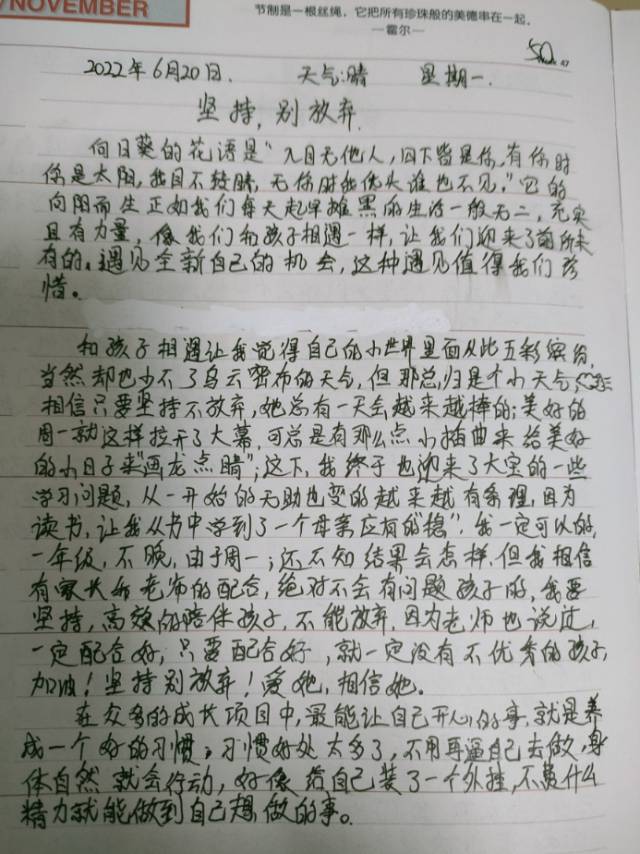 /NOVEMBER
节制是一根丝绳，它把所有珍珠般的美德串在一起。
—霍尔—
50
2022年6月20日. 天气:晴 星期一.
坚持,别放弃.
向日葵的花语是“入目无他人,四下皆是你,有你时
你是太阳,我目不转睛,无你时我低头谁也不见。”它的
向阳而生正如我们每天起早摊黑的生活一般无二,充实
且有力量,像我们和孩子相遇一样,让我们迎来了前所未
有的、遇见全新自己的机会,这种遇见值得我们珍
惜。
和孩子相遇让我觉得自己的小世界里面从此五彩缤纷,
当然却也少不了乌云密布的天气,但那总归是个小天气
相信只要坚持不放弃,她总有一天会越来越棒的;美好的
周一就这样拉开了大幕,可总是有那么点小插曲来给美好
的小日子来“画龙点睛”;这下,我终于也迎来了大宝的一些
学习问题,从一开始的无助也变的越来越有条理,因为
读书,让我从书中学到了一个母亲应有的稳”,我一定可以的,
一年级,不晚,由于周一;还不知结果会怎样,但我相信
有家长和老师的配合,绝对不会有问题孩子的,我要
坚持,高效的陪伴孩子,不能放弃,因为老师也说过,
一定配合好,只要配合好,就一定没有不优秀的孩子,
加油!坚持别放弃!爱她,相信她。
在众多的成长项目中,最能让自己开心的事,就是养
成一个好的习惯;习惯好处太多了,不用再逼自己去做,身
体自然就会行动,好像给自己装了一个外挂,不费什么
精力就能做到自己想做的事。